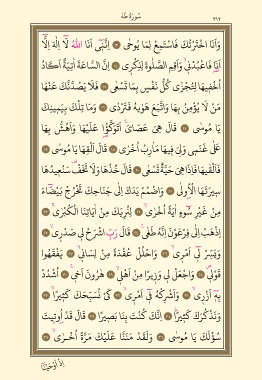 سُورَةُ طٰهٰ
٣١٢
وَاَنَا اخْتَرْتُكَ فَاسْتَمِعْ لِمَا يُوحٰى ﴿١٣﴾ اِنَّنٓى اَنَا اللّٰهُ لَٓا اِلٰهَ اِلَّٓا
اَنَا فَاعْبُدْنٖى وَاَقِمِ الصَّلٰوةَ لِذِكْرٖى ﴿١٤﴾ اِنَّ السَّاعَةَ اٰتِيَةٌ اَكَادُ
اُخْفٖيهَا لِتُجْزٰى كُلُّ نَفْسٍ بِمَا تَسْعٰى ﴿١٥﴾ فَلَا يَصُدَّنَّكَ عَنْهَا
مَنْ لَا يُؤْمِنُ بِهَا وَاتَّبَعَ هَوٰيهُ فَتَرْدٰى ﴿١٦﴾ وَمَا تِلْكَ بِيَمٖينِكَ
يَا مُوسٰى ﴿١٧﴾ قَالَ هِىَ عَصَاىَ اَتَوَكَّؤُ۬ا عَلَيْهَا وَاَهُشُّ بِهَا
عَلٰى غَنَمٖى وَلِىَ فٖيهَا مَاٰرِبُ اُخْرٰى ﴿١٨﴾ قَالَ اَلْقِهَا يَا مُوسٰى ﴿١٩﴾
فَاَلْقٰيهَا فَاِذَا هِىَ حَيَّةٌ تَسْعٰى ﴿٢٠﴾ قَالَ خُذْهَا وَلَا تَخَفْ سَنُعٖيدُهَا
سٖيرَتَهَا الْاُو۫لٰى ﴿٢١﴾ وَاضْمُمْ يَدَكَ اِلٰى جَنَاحِكَ تَخْرُجْ بَيْضَٓاءَ
مِنْ غَيْرِ سُٓوءٍ اٰيَةً اُخْرٰى ﴿٢٢﴾ لِنُرِيَكَ مِنْ اٰيَاتِنَا الْكُبْرٰى ﴿٢٣﴾
اِذْهَبْ اِلٰى فِرْعَوْنَ اِنَّهُ طَغٰى ﴿٢٤﴾ قَالَ رَبِّ اشْرَحْ لٖى صَدْرٖى ﴿٢٥﴾
وَيَسِّرْ لٖٓى اَمْرٖى ﴿٢٦﴾ وَاحْلُلْ عُقْدَةً مِنْ لِسَانٖى ﴿٢٧﴾ يَفْقَهُوا
قَوْلٖى ﴿٢٨﴾ وَاجْعَلْ لٖى وَزٖيرًا مِنْ اَهْلٖى ﴿٢٩﴾ هٰرُونَ اَخٖى ﴿٣٠﴾ اُشْدُدْ
بِهٖٓ اَزْرٖى ﴿٣١﴾ وَاَشْرِكْهُ فٖٓى اَمْرٖى ﴿٣٢﴾ كَىْ نُسَبِّحَكَ كَثٖيرًا ﴿٣٣﴾
وَنَذْكُرَكَ كَثٖيرًا ﴿٣٤﴾ اِنَّكَ كُنْتَ بِنَا بَصٖيرًا ﴿٣٥﴾ قَالَ قَدْ اُو۫تٖيتَ
سُؤْلَكَ يَا مُوسٰى ﴿٣٦﴾ وَلَقَدْ مَنَنَّا عَلَيْكَ مَرَّةً اُخْرٰٓى ﴿٣٧﴾
اِذْ اَوْحَيْنَٓا